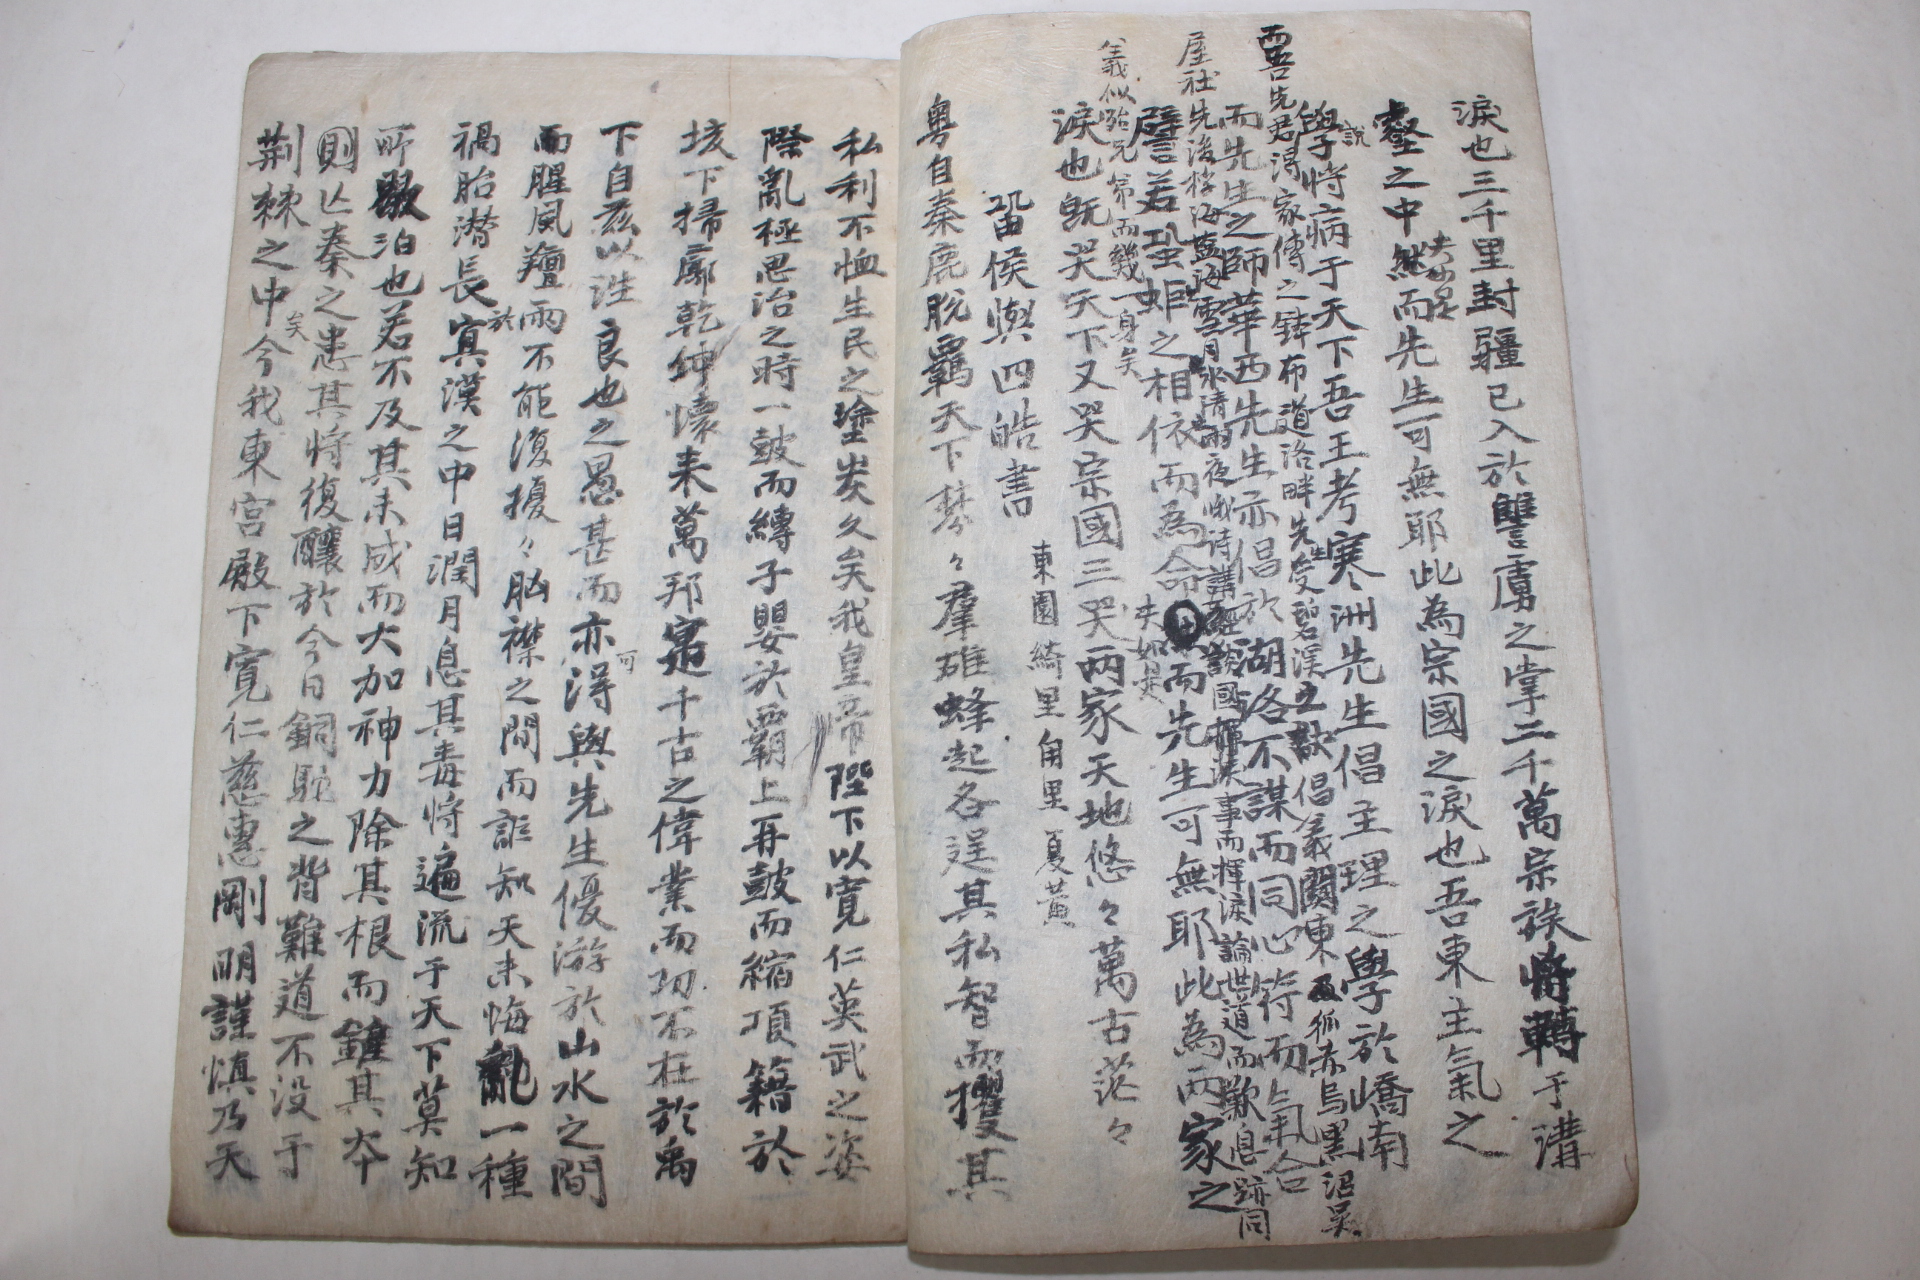 淚也三千里封疆已入於讐虜之掌二千萬宗族將轉于溝
壑之中然而先生可無耶此為宗國之淚也吾東主氣之
夫如是
說
學將病于天下吾王考寒洲先生倡主理之學於嶠南
吾先君得家傳之鉢布道洛畔先生受碧溪之訣倡義關東
狐赤烏黑沼吳
而先生之師華西先生亦倡於湖洛不謀而同心符而氣合
屋社先後桴海
雪月水清雨夜
而揮淚論世道而歎息跡同
譬若蛩蚷之相依而為命
而先生可無耶此為兩家之
夫如是
義似殆兄弟而幾一身矣
淚也旣哭天下又哭宗國三哭兩家天地悠々萬古茫々
東園綺里甪里夏黃
留侯與四皓書
粵自秦鹿脫羈天下棼々羣雄蜂起各逞其私智而攫其
私利不恤生民之塗炭久矣我皇帝陛下以寬仁英武之姿
際亂極思治之時一鼓而縛子嬰於覇上再鼓而縮項籍於
垓下掃廓乾坤懷來萬邦寔千古之偉業而功不在於禹
下自玆以往良也之愚甚而亦得與先生優游於山水之間
可
而腥風羶雨不能復擾々胸襟之間而詎知天未悔亂一種
禍胎潛長冥漠之中日潤月息其毒將遍流于天下莫知
於
所歇泊也若不及其未成而大加神力除其根而鏟其本
則亡秦之患其將復釀於今日銅駝之背難道不沒于
荆棘之中今我東宮殿下寬仁慈惠剛明謹愼乃天
矣